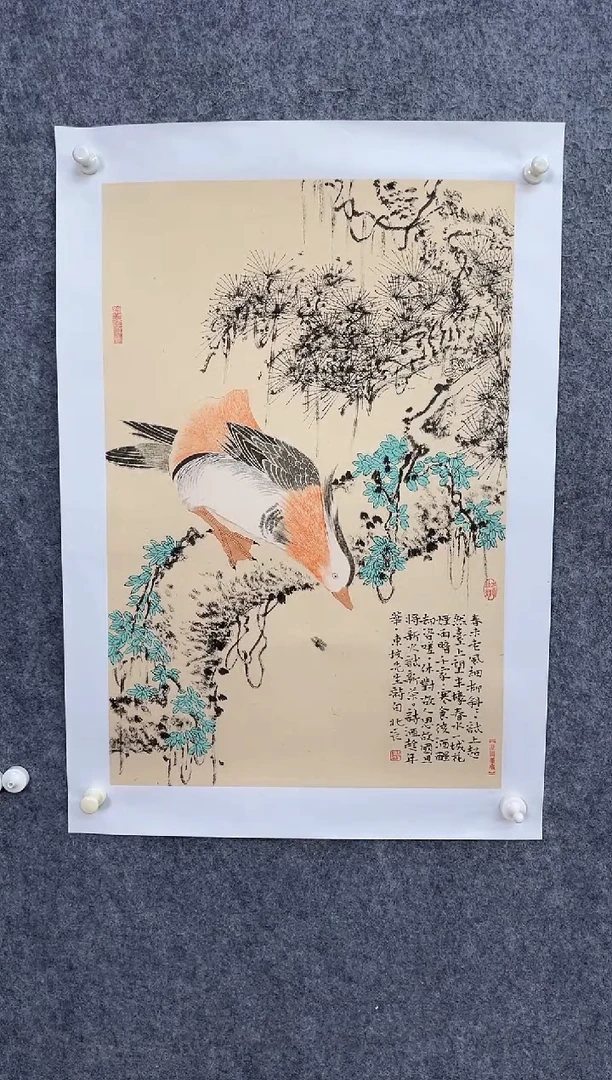 春未老風細柳斜〻試上超
然臺上望半壕春水一城花
煙雨暗千家寒食後酒醒
却咨嗟休對故人思故國且
將新火試新茶詩酒趁年
華東坡先生詩句北